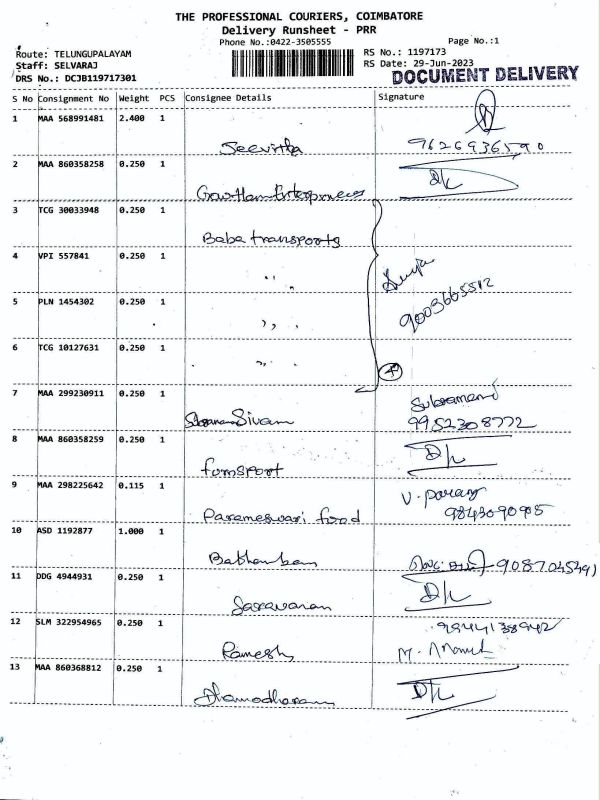 THE PROFESSIONAL COURIERS, COIMBATORE
Delivery Runsheet - PRR
Phone No.:0422-3505555 Page No.:1
Route: TELUNGUPALAYAM RS No.: 1197173
Staff: SELVARAJ RS Date: 29-Jun-2023
DRS No.: DCJB119717301 DOCUMENT DELIVERY
S No Consignment No Weight PCS Consignee Details Signature
1 MAA 568991481 2.400 1
Jeevitha 9626936590
2 MAA 860358258 0.250 1 D/L
3 TCG 30033948 0.250 1
Baba transports
4 VPI 557841 0.250 1
" Surya
5 PLN 1454302 0.250 1 9003665512
"
6 TCG 10127631 0.250 1
" 4
7 MAA 299230911 0.250 1 Subramani
Sivam 9952308772
8 MAA 860358259 0.250 1 D/L
fumsport
9 MAA 298225642 0.115 1
Parameswari food
10 ASD 1192877 1.000 1
11 DDG 4944931 0.250 1 D/L
Saravanan
12 SLM 322954965 0.250 1
Ramesh
13 MAA 860368812 0.250 1 D/L
Dhamodharan